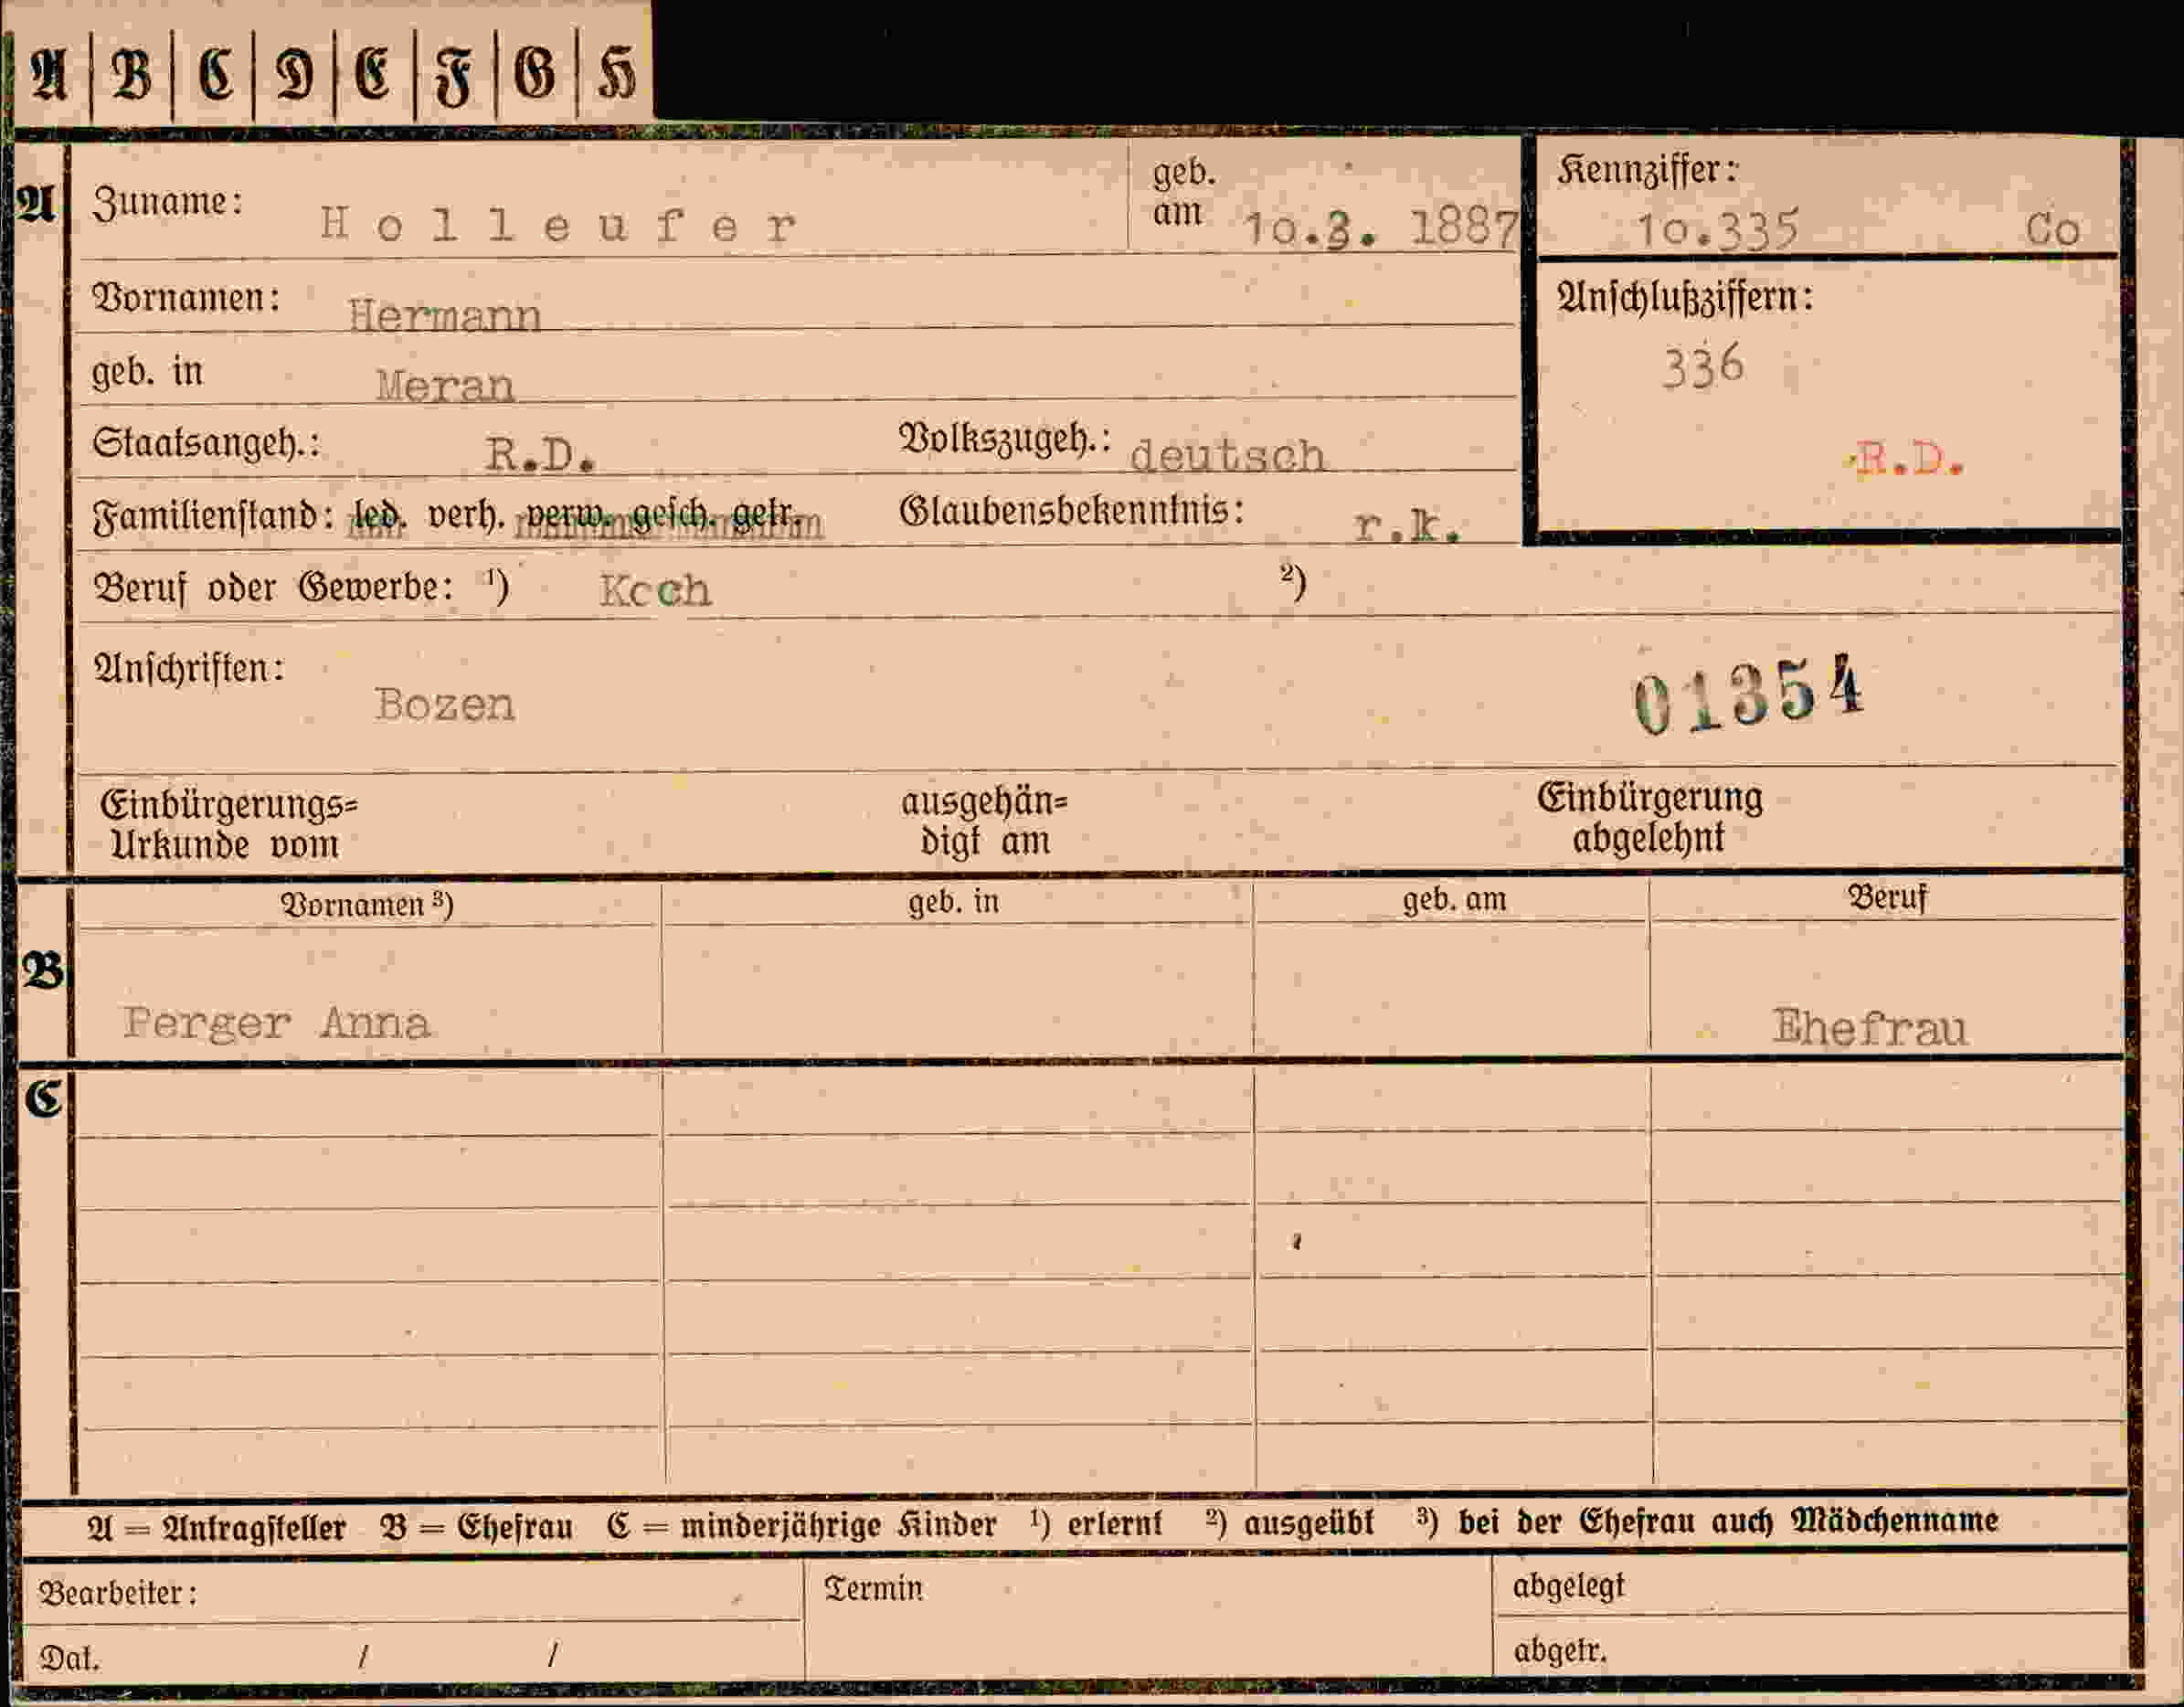 A | B | C | D | E | F | G | H
A
Zuname: Holleufer
geb. am 10.3. 1887
Kennziffer: 10.335 Co
Vornamen: Hermann
Anschlußziffern:
336
geb. in Meran
Staatsangeh.: R.D. Volkszugeh.: deutsch
R.D.
Familienstand: led. verh. verw. gesch. getr. Glaubensbekenntnis: r.k.
Beruf oder Gewerbe: ¹) Koch ²)
Anschriften:
Bozen
01354
Einbürgerungs=
Urkunde vom
ausgehän=
digt am
Einbürgerung
abgelehnt
B
Vornamen ³) geb. in geb. am Beruf
Perger Anna Ehefrau
C
A = Antragsteller B = Ehefrau C = minderjährige Kinder ¹) erlernt ²) ausgeübt ³) bei der Ehefrau auch Mädchenname
Bearbeiter: Termin abgelegt
Dat. / / abgetr.